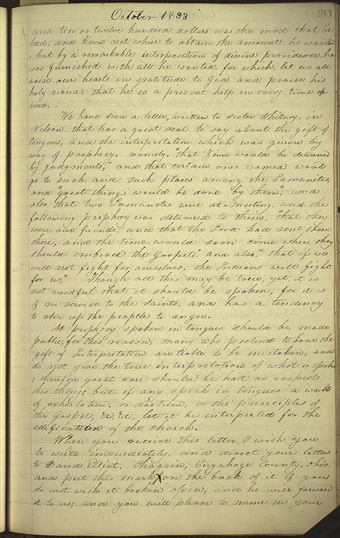 October 1833
359
and ten or twelve hundred dollars was the most that he
had, and knew not what to obtain the amount he wanted
but by a remarkable interposition of divine providence, he
was furnished with all he wanted, for which, let us all
raise our hearts in gratitude to God and praise his
holy name, that he is a present help in every time of
need.
We have seen a letter, written to sister Whitney, in
Nelson, that has a great deal to say about the gift of
tongues, and the interpretation which was given by
way of prophecy, namely, "that Zion would be delivered
by judgements;" and that certain ones named would
go to such and such places among the Lamanites,
and "great things would be done by them;" and
also that two Lamanites were at a meeting, and the
following prophecy was delivered to them, "that they
were our friends" and that the Lord had sent them
there, and the time would soon come when they
should embrace the Gospel: and also, "that if we
will not fight for ourselves, the Indians will fight
for us." Though all this may be true, yet, it is
not needful that it should be spoken, for it is
of no service to the Saints, and has a tendency
to stir up the people to anger.
No prophecy spoken in tongues should be made
public, for this reason; many who pretend to have the
gift of Interpretation are liable to be mistaken, and
do not give the true interpretation of what is spoken;
therefore great care should be had as respects
this thing; but if any speak in tongues a word
of exhortation, or doctrine, or the principles of
the gospel, &c, &c, let it be interpreted for the
edification of the church.
When you receive this letter, I wish you
to write immediately, and direct your letters
to David Elliot, Chagrin, Cuyahoga County, Ohio
and put this mark on the back of it if you
do not wish it broken open, and he will forward
it to us; and you will please to name in your